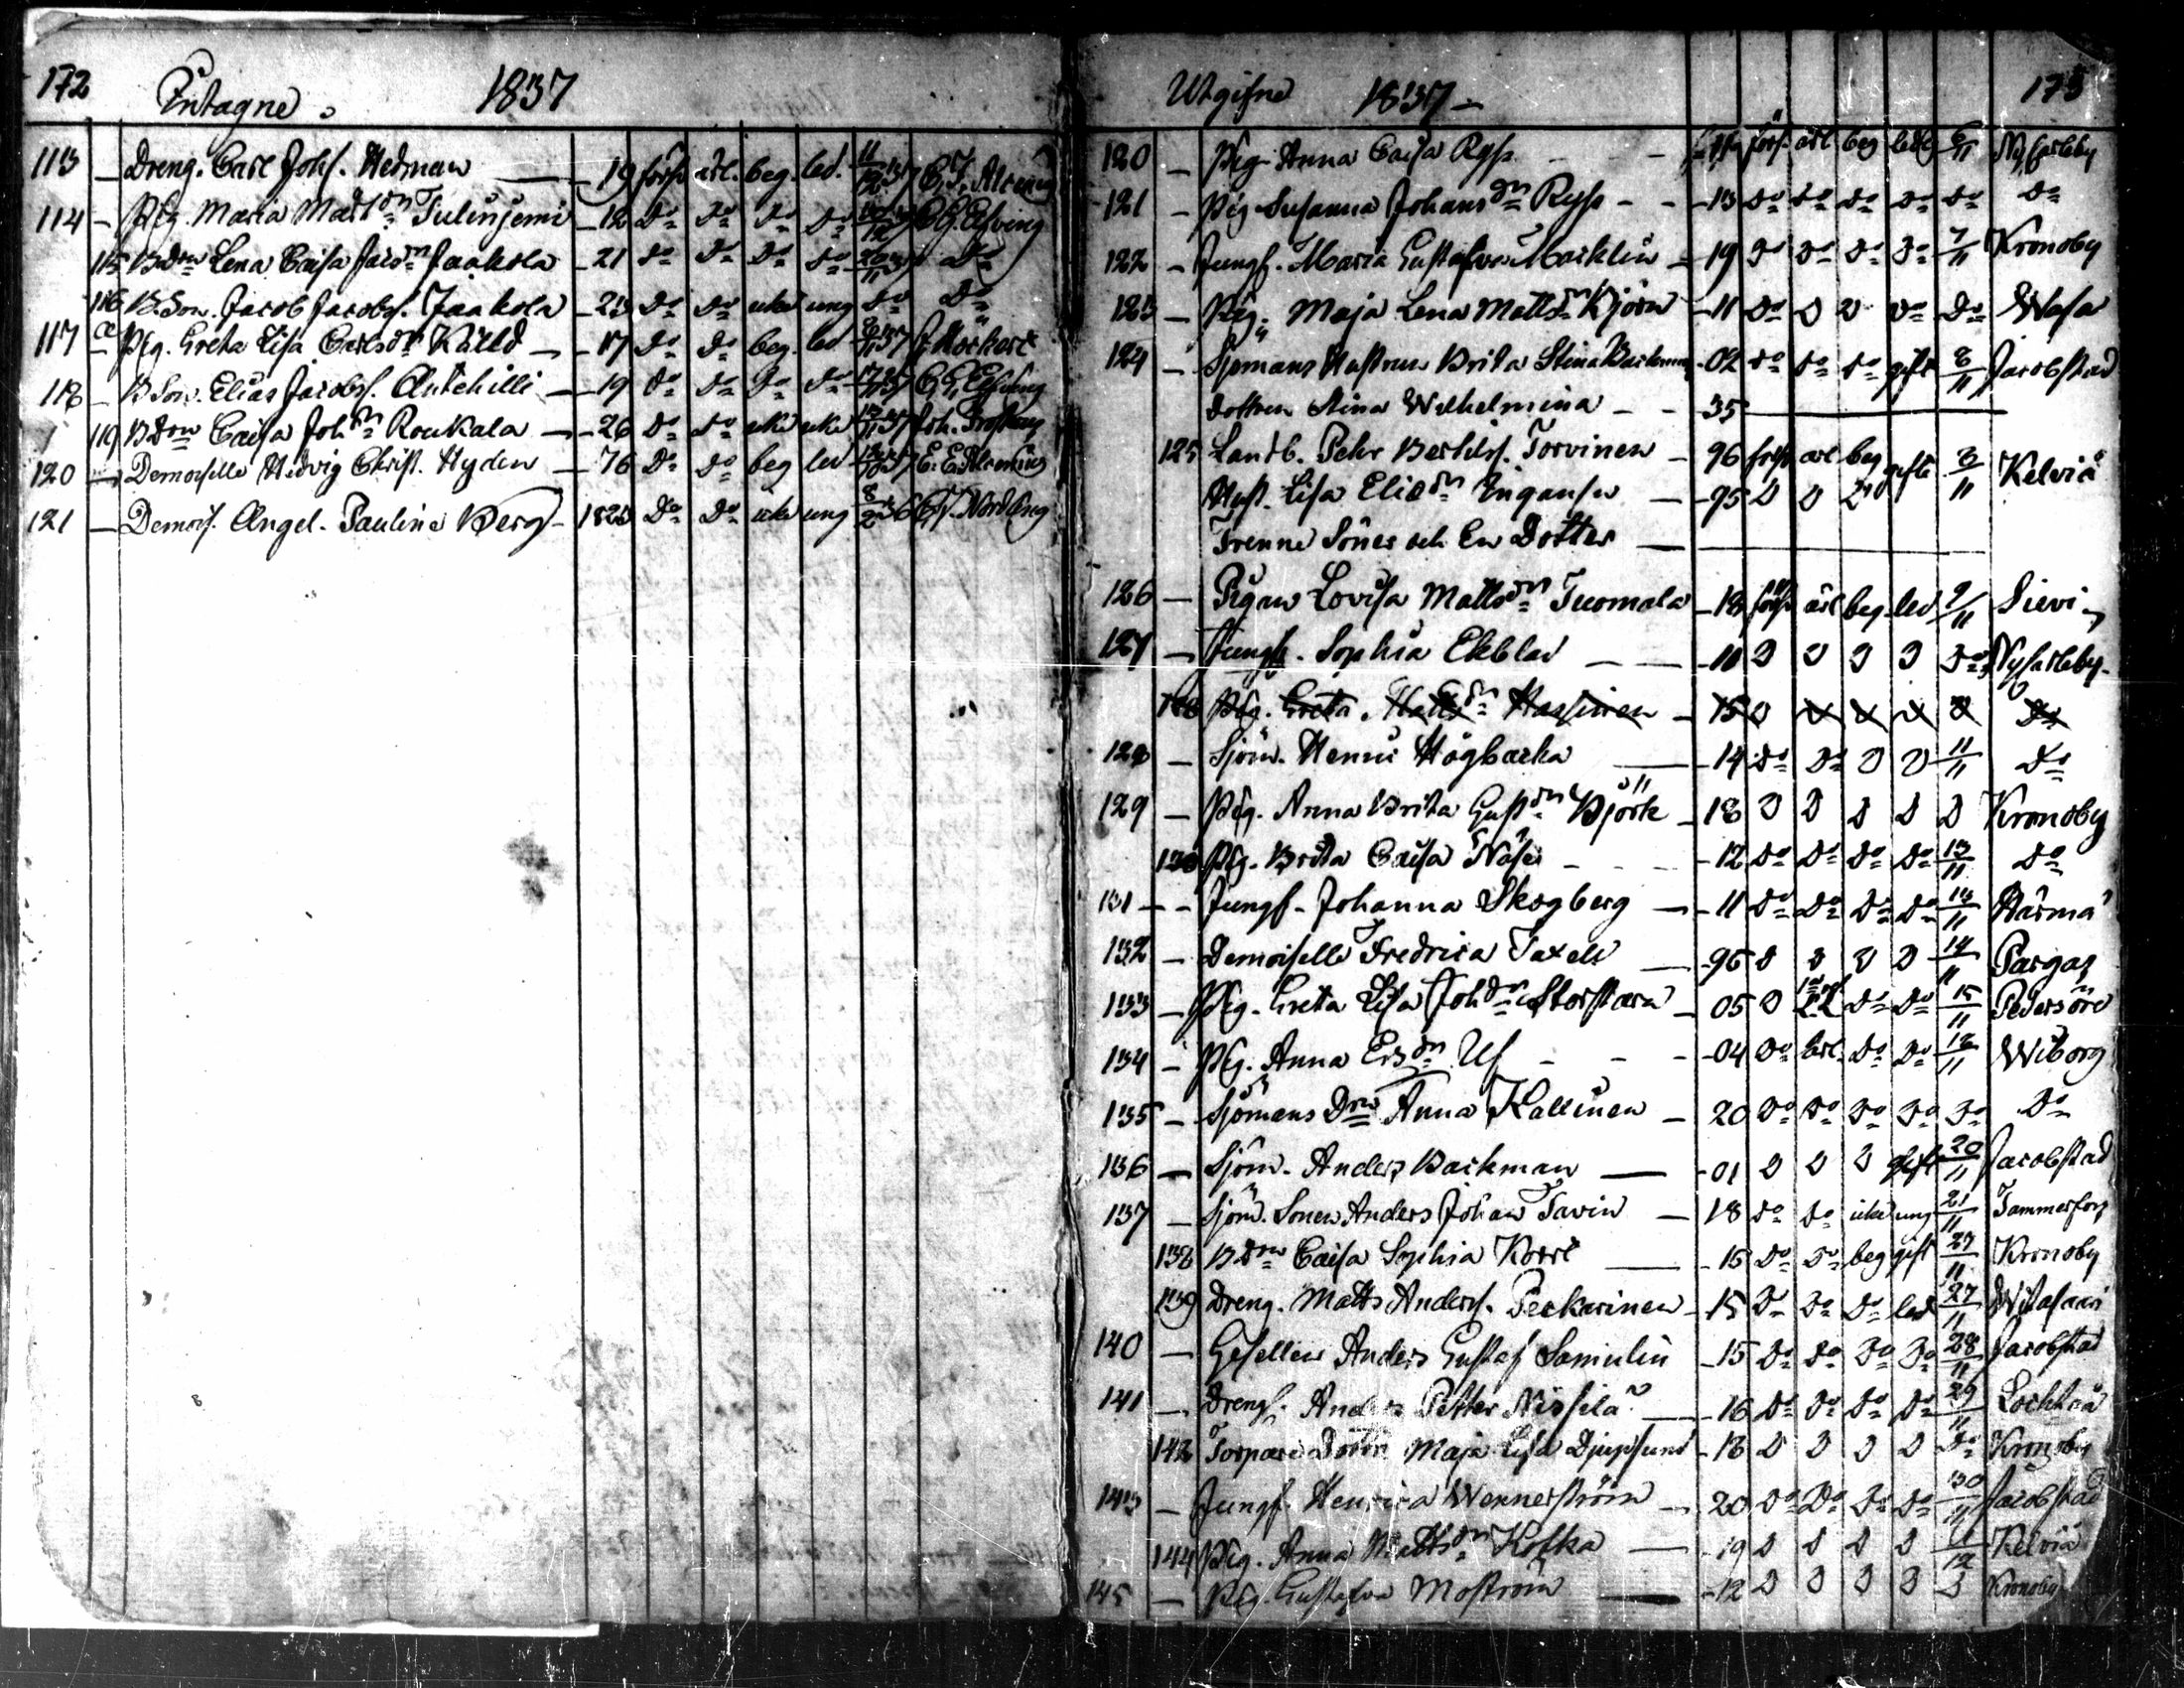 172 Intagne. 1837
113 — Dreng. Carl Johs. Hedman — 19 försv. ärl. beg. led. 11/12 37 C. J. Alceniq
114 — Pig. Maria Matsdn Tulinjemi — 12 do do do do 37 C. G. Elfving
115 B.Dn Lena Caisa Jacdn Jaakola — 21 do do do do 26/11 37 do
116 B.Son. Jacob Jacobs. Jaakola — 23 do do icke ung do do
117 — Pig. Greta Lisa Carlsdn Källd — 17 do do beg. led 8/11 37
118 — B.Son. Elias Jacobss. Antehilli — 19 do do do do 17/11 37 C. G. Elfving
119 B.Dn Caisa Johdn Roukala — 26 do do icke icke 13/11 37 Joh.
120 — Demoiselle Hedvig Christ. Hyden — 76 do do beg led 37 E. E. Alcenius
121 — Demois. Angel. Paulina Berg — 1823 do do icke ung 8/2 36 Nordling
Utgifne 1837 — 173
120 — Pig. Anna Caisa Ryss — försv. ärl beg ledig 6/11 Nycarleby
121 — Pig. Susanna Johansdn Ryss — 13 do do do do do do
122 — Jungf. Maria Gustafva Macklin — 19 do do do do 7/11 Kronoby
123 — Pig. Maja Lena Mattsdn Björn — 11 do D D do do Wasa
124 — Sjömans Hustrun Brita Stina Backman — 02 do do do gift 8/11 Jacobstad
dottren Stina Wilhelmina — 35
125 Landb. Pehr Bertils. Torvinen — 96 försv ärl beg gifte 8/11 Kelviå
Hust. Lisa Eliedn — 95 D D D
Trenne Söner och En Dotter —
126 — Pigan Lovisa Mattsdn Tuomala — 18 försv ärl beg led 9/11 Sievi
127 — Jungf. Sophia Ekblad — 10 D D D D do Nycarleby
Pig. Greta Mattsdn Hassinen — 15 D D D D D do
128 — Sjöm. Henric Högbacka — 14 do do D D 11/11 do
129 — Pig. Anna Brita Gustdn Björk — 18 D D D D D Kronoby
130 Pig. Brita Caisa Näse — 12 do do do do 13/11 do
131 — Jungf. Johanna Skogberg — 11 do do do do 13/11 Härmä
132 — Demoiselle Fredrica Taxell — 96 D D D D 14/11 Pargas
133 — Pig. Greta Lisa Johdn Storstara — 05 D do do 15/11 Pedersöre
134 — Pig. Anna Ersdn Ulf — 04 do ärl. do do 18/11 Wiborg
135 — Sjömans Dn Anna Kallinen — 20 do do do do do do
136 — Sjöm. Anders Backman — 01 D D D gift 20/11 Jacobstad
137 — Sjöm. Sonen Anders Johan Tavin — 18 do do icke ung 21/11 Tammerfors
138 B.Dn Caisa Sophia Korri — 15 do do beg gift 27/11 Kronoby
139 Dreng. Matts Anders. Peckarinen — 15 do do do led 27/11 Witasaari
140 — Gesellen Anders Gustaf Samulin — 15 do do do do 28/11 Jacobstad
141 — Dreng. Anders Petter Nissilä — 16 do do do do 29/11 Lochteå
142 Torpare Dottn Maja Lisa Djupsund — 18 D D D D do Kronoby
143 — Jungf. Henrica Wennerström — 20 do do do do 30/11 Jacobstad
144 Pig. Anna Mattsdn Kotka — 19 D D D D 11/12 Kelviå
145 — Pig. Gustafva Moström — 12 D D D D D Kronoby